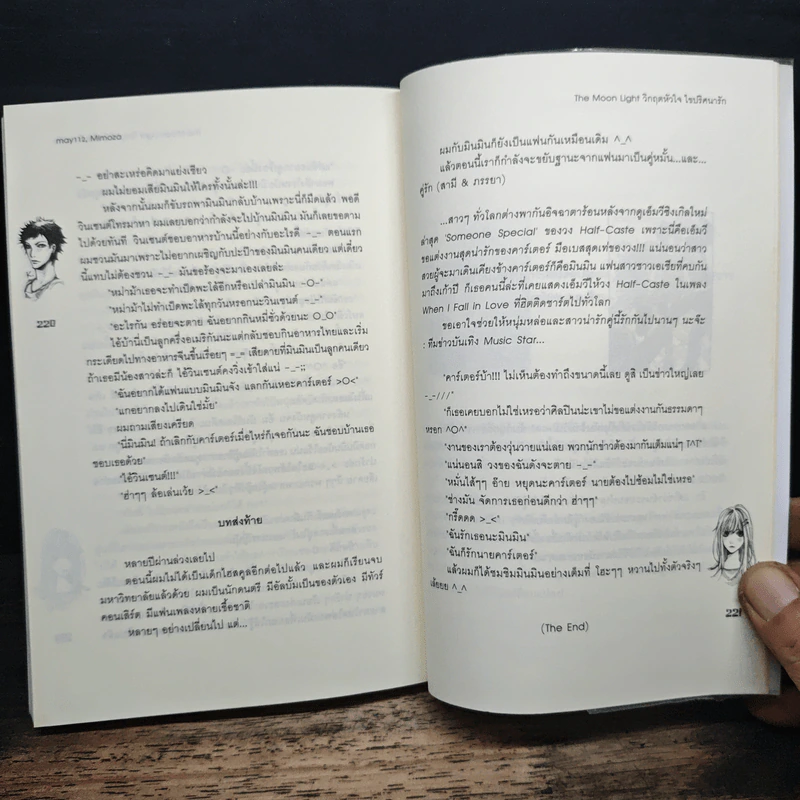 may112, Mimoza
-_- อย่าสะเหร่อคิดมาแย่งเชียว
ผมไม่ยอมเสียมินมินให้ใครทั้งนั้นล่ะ!!!
หลังจากนั้นผมก็ขับรถพามินมินกลับบ้านเพราะนี่ก็มืดแล้ว พอดี
วินเซนต์โทรมาหา ผมเลยบอกว่ากำลังจะไปบ้านมินมิน มันก็เลยขอตาม
ไปด้วยทันที วินเซนต์ชอบอาหารบ้านนี้อย่างกับอะไรดี -_- ตอนแรก
ผมชวนมันมาเพราะไม่อยากเผชิญกับปะป๊าของมินมินคนเดียว แต่เดี๋ยว
นี้แทบไม่ต้องชวน -_- มันขอร้องจะมาเองเลยล่ะ
"หม่าม้าเธอจะทำเป็ดพะโล้อีกหรือเปล่ามินมิน ~O~"
"หม่าม้าไม่ทำเป็ดพะโล้ทุกวันหรอกนะวินเซนต์ -_-"
"อะไรกัน อร่อยจะตาย ฉันอยากกินหมี่ซั่วด้วยนะ O_O"
ไอ้บ้านี่เป็นลูกครึ่งอเมริกันนะแต่กลับชอบกินอาหารไทยและเริ่ม
กระเดียดไปทางอาหารจีนขึ้นเรื่อยๆ =_= เสียดายที่มินมินเป็นลูกคนเดียว
ถ้าเธอมีน้องสาวล่ะก็ ไอ้วินเซนต์คงวิ่งเข้าใส่แน่ -_-;;
"ฉันอยากได้แฟนแบบมินมินจัง แลกกันเหอะคาร์เตอร์ >O<"
"แกอยากลงไปเดินใช่มั้ย"
ผมถามเสียงเครียด
"นี่มินมิน! ถ้าเลิกกับคาร์เตอร์เมื่อไหร่ก็เจอกันนะ ฉันชอบบ้านเธอ
ชอบเธอด้วย"
"ไอ้วินเซนต์!!!"
"ฮ่าๆๆ ล้อเล่นเว้ย >_<"
บทส่งท้าย
หลายปีผ่านล่วงเลยไป
ตอนนี้ผมไม่ได้เป็นเด็กไฮสคูลอีกต่อไปแล้ว และผมก็เรียนจบ
มหาวิทยาลัยแล้วด้วย ผมเป็นนักดนตรี มีอัลบั้มเป็นของตัวเอง มีทัวร์
คอนเสิร์ต มีแฟนเพลงหลายเชื้อชาติ
หลายๆ อย่างเปลี่ยนไป แต่...
220
The Moon Light วิกฤตหัวใจ ไขปริศนารัก
ผมกับมินมินก็ยังเป็นแฟนกันเหมือนเดิม ^_^
แล้วตอนนี้เราก็กำลังจะขยับฐานะจากแฟนมาเป็นคู่หมั้น...และ...
คู่รัก (สามี & ภรรยา)
...สาวๆ ทั่วโลกต่างพากันอิจฉาตาร้อนหลังจากดูเอ็มวีซิงเกิลใหม่
ล่าสุด 'Someone Special' ของวง Half-Caste เพราะนี่คือเอ็มวี
ขอแต่งงานสุดน่ารักของคาร์เตอร์ มือเบสสุดเท่ของวง!!! แน่นอนว่าสาว
สวยผู้จะมาเดินเคียงข้างคาร์เตอร์ก็คือมินมิน แฟนสาวชาวเอเชียที่คบกัน
มาถึงเก้าปี ก็เธอคนนี้ล่ะที่เคยแสดงเอ็มวีให้วง Half-Caste ในเพลง
When I Fall in Love ที่ฮิตติดชาร์ตไปทั่วโลก
ขอเอาใจช่วยให้หนุ่มหล่อและสาวน่ารักคู่นี้รักกันไปนานๆ นะจ๊ะ
: ทีมข่าวบันเทิง Music Star...
"คาร์เตอร์บ้า!!! ไม่เห็นต้องทำถึงขนาดนี้เลย ดูสิ เป็นข่าวใหญ่เลย
-_-///"
"ก็เธอเคยบอกไม่ใช่เหรอว่าศิลปินน่ะเขาไม่ขอแต่งงานกันธรรมดาๆ
หรอก ^O^"
"งานของเราต้องวุ่นวายแน่เลย พวกนักข่าวต้องมากันเต็มแน่ๆ T^T"
"แน่นอนสิ วงของฉันดังจะตาย -_-"
"หมั่นไส้ๆๆ อ๊าย หยุดนะคาร์เตอร์ นายต้องไปซ้อมไม่ใช่เหรอ"
"ช่างมัน จัดการเธอก่อนดีกว่า ฮ่าๆๆ"
"กรี๊ดดด >_<"
"ฉันรักเธอนะมินมิน"
"ฉันก็รักนายคาร์เตอร์"
แล้วผมก็ได้ชมชิมมินมินอย่างเต็มที่ โฮะๆๆ หวานไปทั้งตัวจริงๆ
เล้ยยย ^_^
(The End)